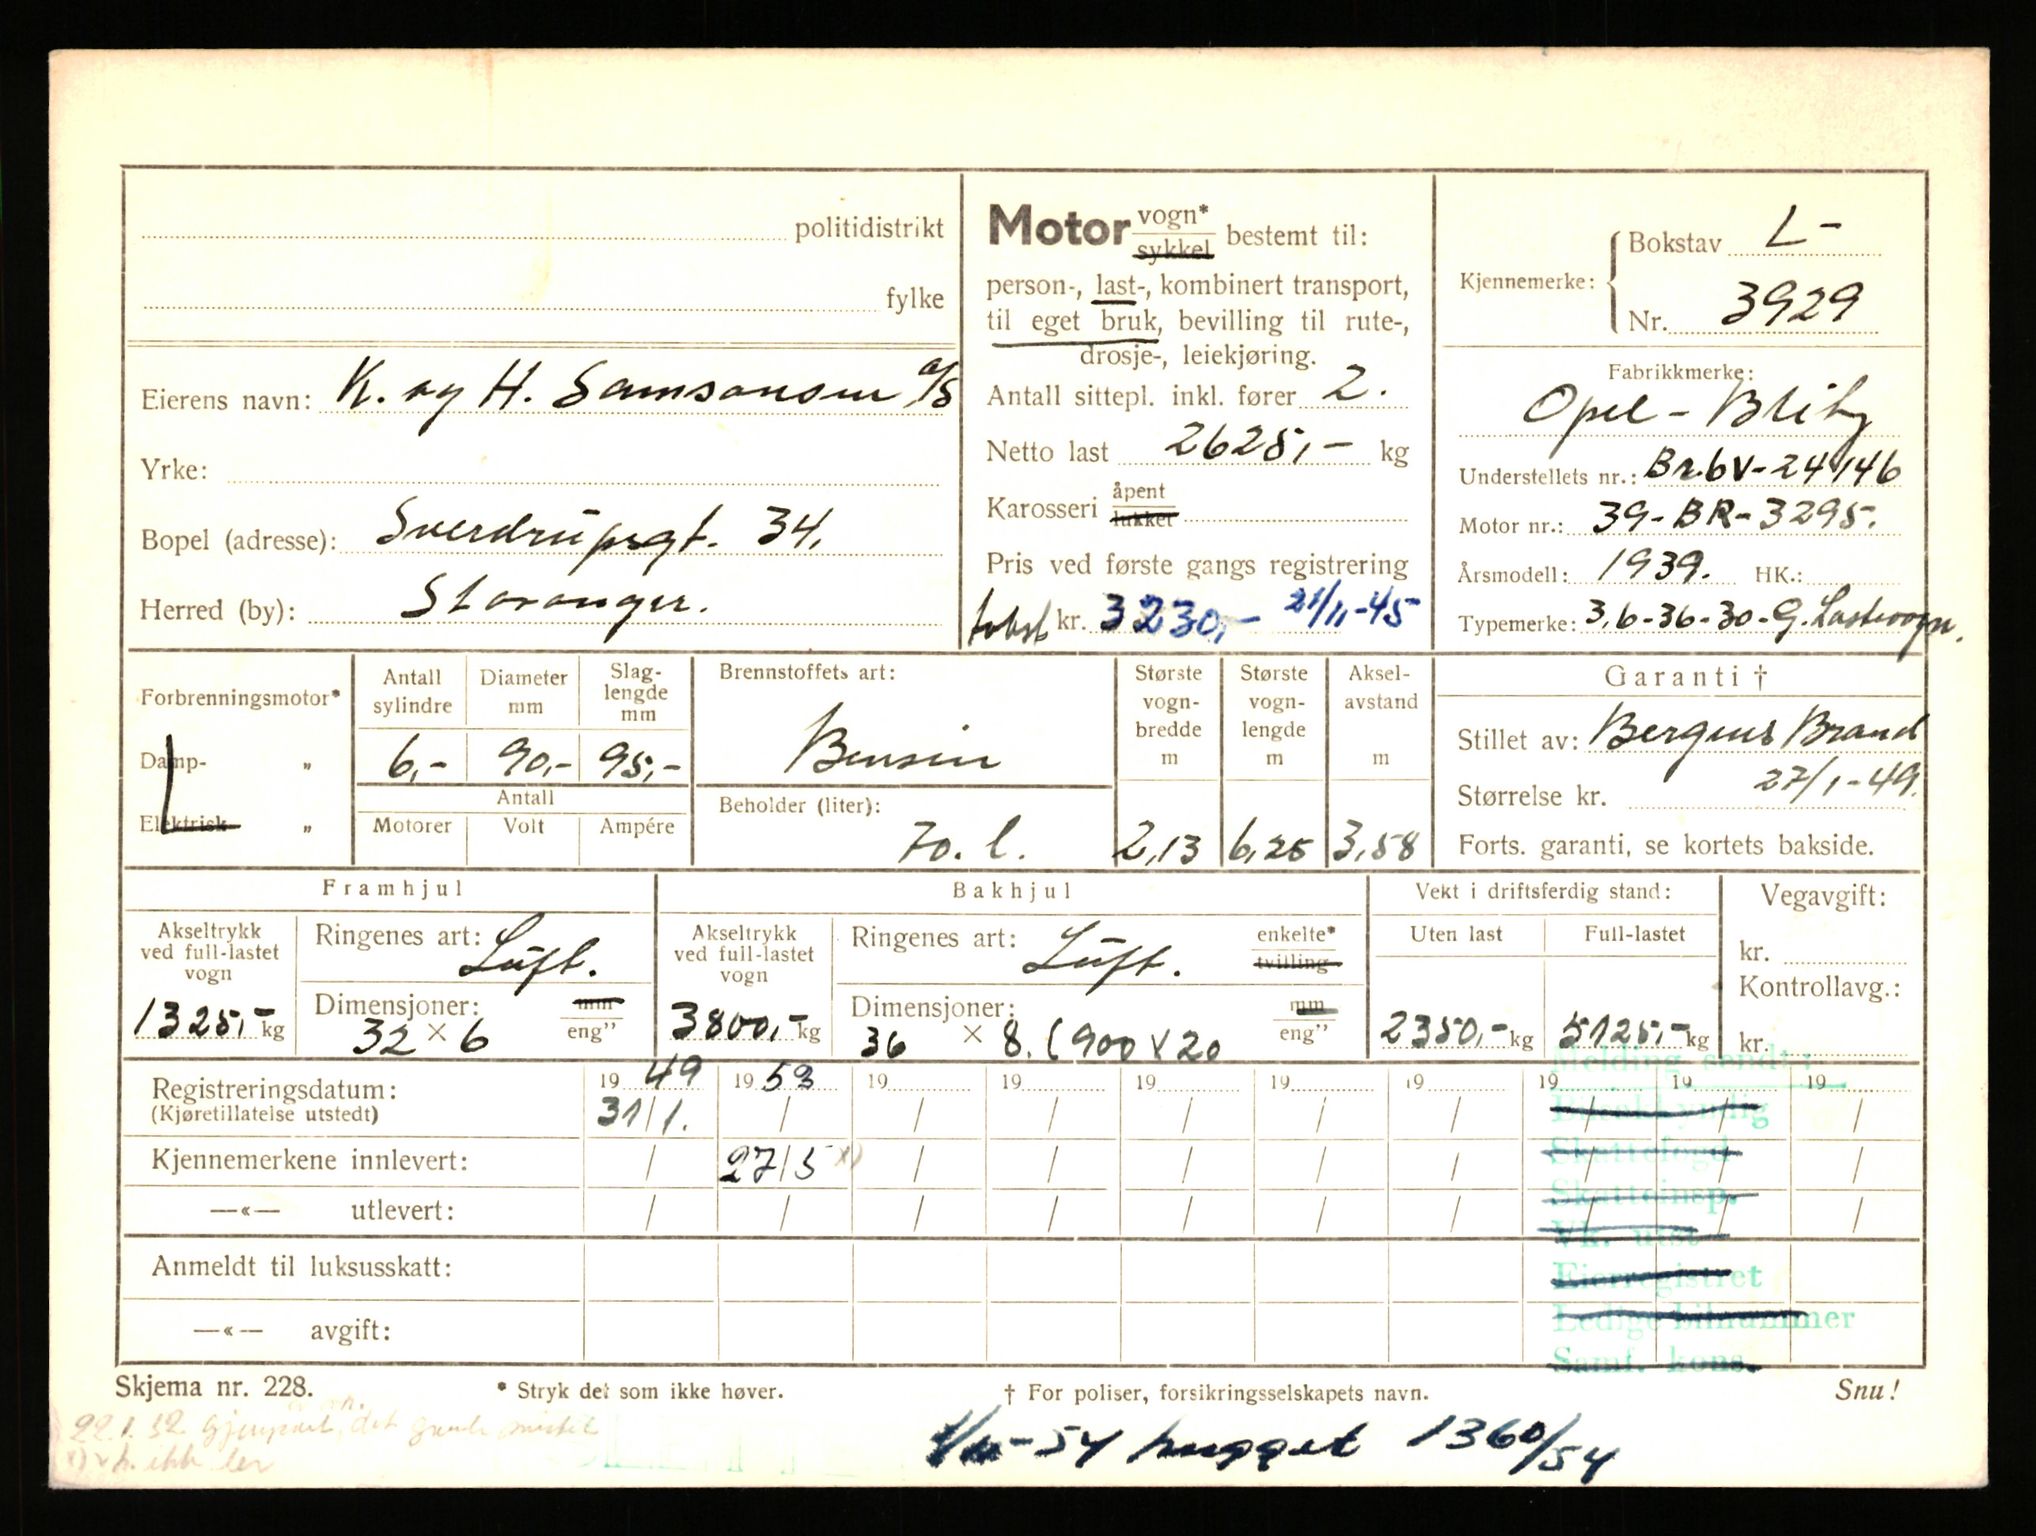 politidistrikt
fylke
Eierens navn: K. og H. Samsonsen a/s
Yrke:
Bopel (adresse): Sverdrupsgt. 34.
Herred (by): Stavanger.
Motor vogn* sykkel bestemt til:
person-, last-, kombinert transport,
til eget bruk, bevilling til rute-,
drosje-, leiekjøring.
Antall sittepl. inkl. fører 2.
Netto last 2625,- kg
Karosseri åpent lukket
Pris ved første gangs registrering
kr. 3230,- 21/11-45
Kjennemerke: Bokstav L-
Nr. 3929
Fabrikkmerke:
Opel - Blitz
Understellets nr.: Br.6V-24146
Motor nr.: 39-BR-3295.
Årsmodell: 1939. HK.:
Typemerke: 3,6-36-30-G. Lastevogn.
Forbrenningsmotor*
Damp- "
Elektrisk "
Antall sylindre Diameter mm Slag-lengde mm
6,- 90,- 95,-
Antall
Motorer Volt Ampére
Brennstoffets art:
Bensin
Beholder (liter):
70. l.
Største vogn-bredde m Største vogn-lengde m Aksel-avstand m
2,13 6,25 3,58
Garanti †
Stillet av: Bergens Brand
27/1-49.
Størrelse kr.
Forts. garanti, se kortets bakside.
Framhjul
Akseltrykk ved full-lastet vogn
1325,- kg
Ringenes art: Luft.
Dimensjoner: mm
32 × 6 eng”
Bakhjul
Akseltrykk ved full-lastet vogn
3800,- kg
Ringenes art: Luft. enkelte* tvilling
Dimensjoner: mm
36 × 8. (900 x 20 eng”
Vekt i driftsferdig stand:
Uten last Full-lastet
2350,- kg 5125,- kg
Vegavgift:
kr.
Kontrollavg.:
kr.
Registreringsdatum: 19 49 19 53 19 19 19 19 19 19 19 19
(Kjøretillatelse utstedt) 31/1. / / / / / / / / /
Kjennemerkene innlevert: / 27/5 x) / / / / / / / /
—«— utlevert: / / / / / / / / / /
Anmeldt til luksusskatt:
—«— avgift:
Melding sendt:
Skattefogd
Skatteinsp.
Vk. utst
Eierregistret
Ledige bilnummer
Samf. kons.
Skjema nr. 228.
* Stryk det som ikke høver.
† For poliser, forsikringsselskapets navn.
Snu!
-54 hugget 1360/54
22.1.52. gjenpart, det gamle mistet
x) v.k. ikke lev